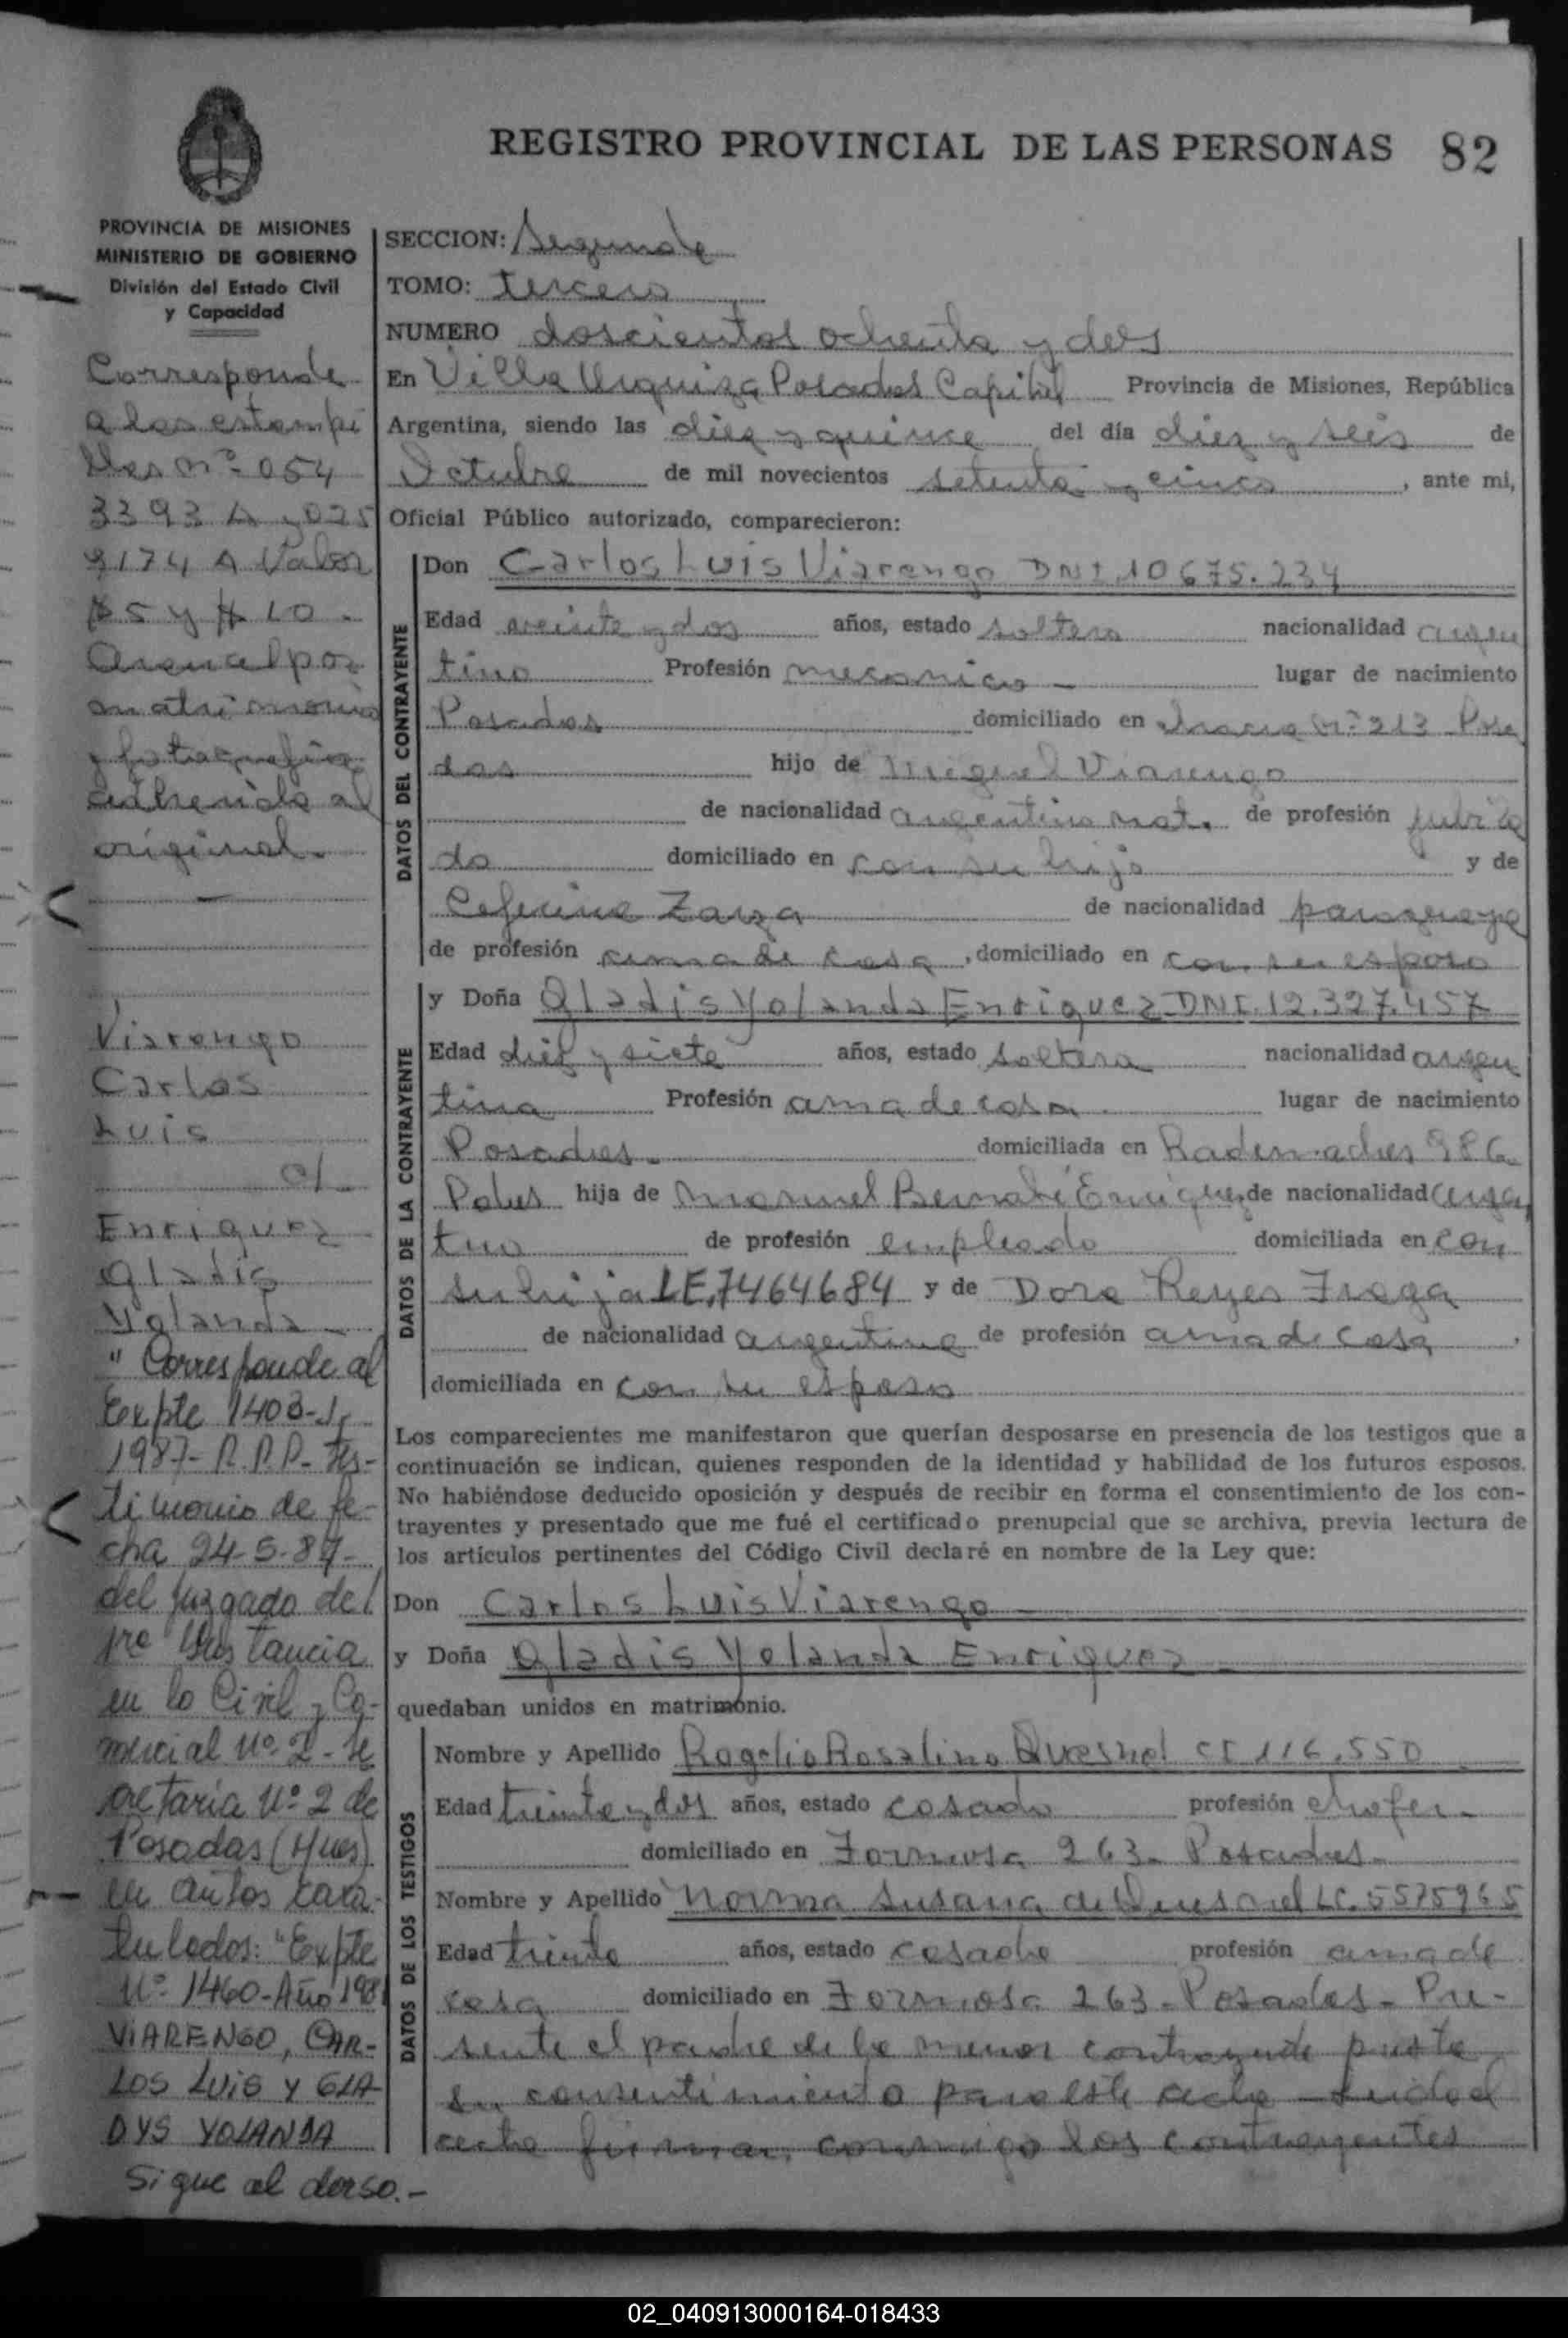 REGISTRO PROVINCIAL DE LAS PERSONAS 82
PROVINCIA DE MISIONES
MINISTERIO DE GOBIERNO
División del Estado Civil
y Capacidad
Corresponde
a las estampi
llas nº 054
3393 A y 025
9174 A Valor
$5 y $10.
Arancel por
matrimonio
y fotografia
adherida al
original.
Viarengo
Carlos
Luis
c/
Enriquez
Gladis
Yolanda
"Corresponde al
Expte 1403-J,
1987- R.P.P. Tes-
timonio de fe-
cha 24-5-87-
del Juzgado de
1ra Instancia
en lo Civil y Co-
mercial Nº 2 - Se
cretaria Nº 2 de
Posadas (Mnes)
en autos cara-
tulados: "Expte
Nº 1460-Año 198
VIARENGO, CAR-
LOS LUIS Y GLA-
DYS YOLANDA
Sigue al dorso.-
SECCION: Segunda
TOMO: tercero
NUMERO doscientos ochenta y dos
En Villa Urquiza Posadas Capital Provincia de Misiones, República
Argentina, siendo las diez y quince del día diez y seis de
Octubre de mil novecientos setenta y cinco, ante mi,
Oficial Público autorizado, comparecieron:
DATOS DEL CONTRAYENTE
Don Carlos Luis Viarengo DNI 10675.234
Edad veinte y dos años, estado soltero nacionalidad argen
tino Profesión mecanico - lugar de nacimiento
Posadas domiciliado en Nº 213 Posa
das hijo de Miguel Viarengo
de nacionalidad argentino nat. de profesión jubila
do domiciliado en con su hijo y de
Ceferina Zarza de nacionalidad paraguaya
de profesión ama de casa, domiciliado en con su esposo
DATOS DE LA CONTRAYENTE
y Doña Gladis Yolanda Enriquez DNI. 12.327.457
Edad diez y siete años, estado soltera nacionalidad argen
tina Profesión ama de casa. lugar de nacimiento
Posadas. domiciliada en Rademacher 986
Pdas hija de Manuel Bernabé Enriquez de nacionalidad argen
tino de profesión empleado domiciliada en con
su hija LE.7464684 y de Dora Reyes Fraga
de nacionalidad argentina de profesión ama de casa,
domiciliada en con su esposo
Los comparecientes me manifestaron que querían desposarse en presencia de los testigos que a
continuación se indican, quienes responden de la identidad y habilidad de los futuros esposos.
No habiéndose deducido oposición y después de recibir en forma el consentimiento de los con-
trayentes y presentado que me fué el certificado prenupcial que se archiva, previa lectura de
los artículos pertinentes del Código Civil declaré en nombre de la Ley que:
Don Carlos Luis Viarengo
y Doña Gladis Yolanda Enriquez
quedaban unidos en matrimonio.
DATOS DE LOS TESTIGOS
Nombre y Apellido Rogelio Rosalino Quesnel CI 116.550
Edad treinta y dos años, estado casado profesión chofer
domiciliado en Formosa 263- Posadas-
Nombre y Apellido Norma Susana de Quesnel LC. 5575965
Edad treinta años, estado casada profesión ama de
casa domiciliado en Formosa 263- Posadas- Pre-
sente el padre de la menor contrayente presta
su consentimiento para este acto - Leida el
acta firman conmigo los contrayentes
02_040913000164-018433